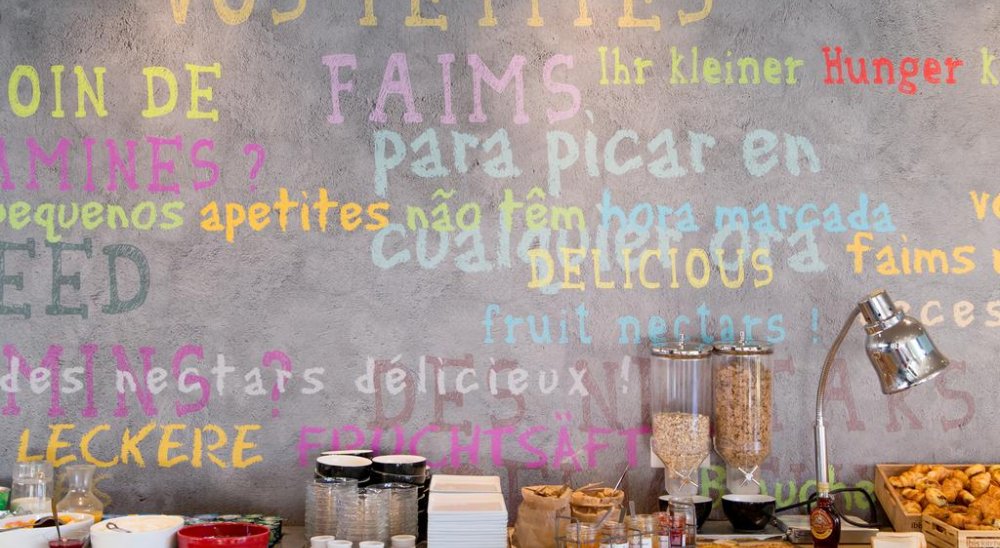 VOS PETITES
OIN DE
FAIMS
Ihr kleiner Hunger k
AMINES ?
para picar en
pequenos apetites não têm hora marcada
cualquier ora
EED
DELICIOUS
faims
fruit nectars !
MINS ?
des nectars délicieux !
DES NECTARS
LECKERE
FRUCHTSÄFT